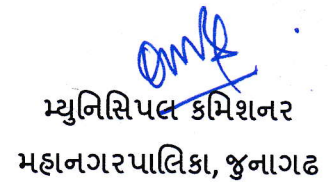 મ્યુનિસિપલ કમિશનર
મહાનગરપાલિકા, જુનાગઢ